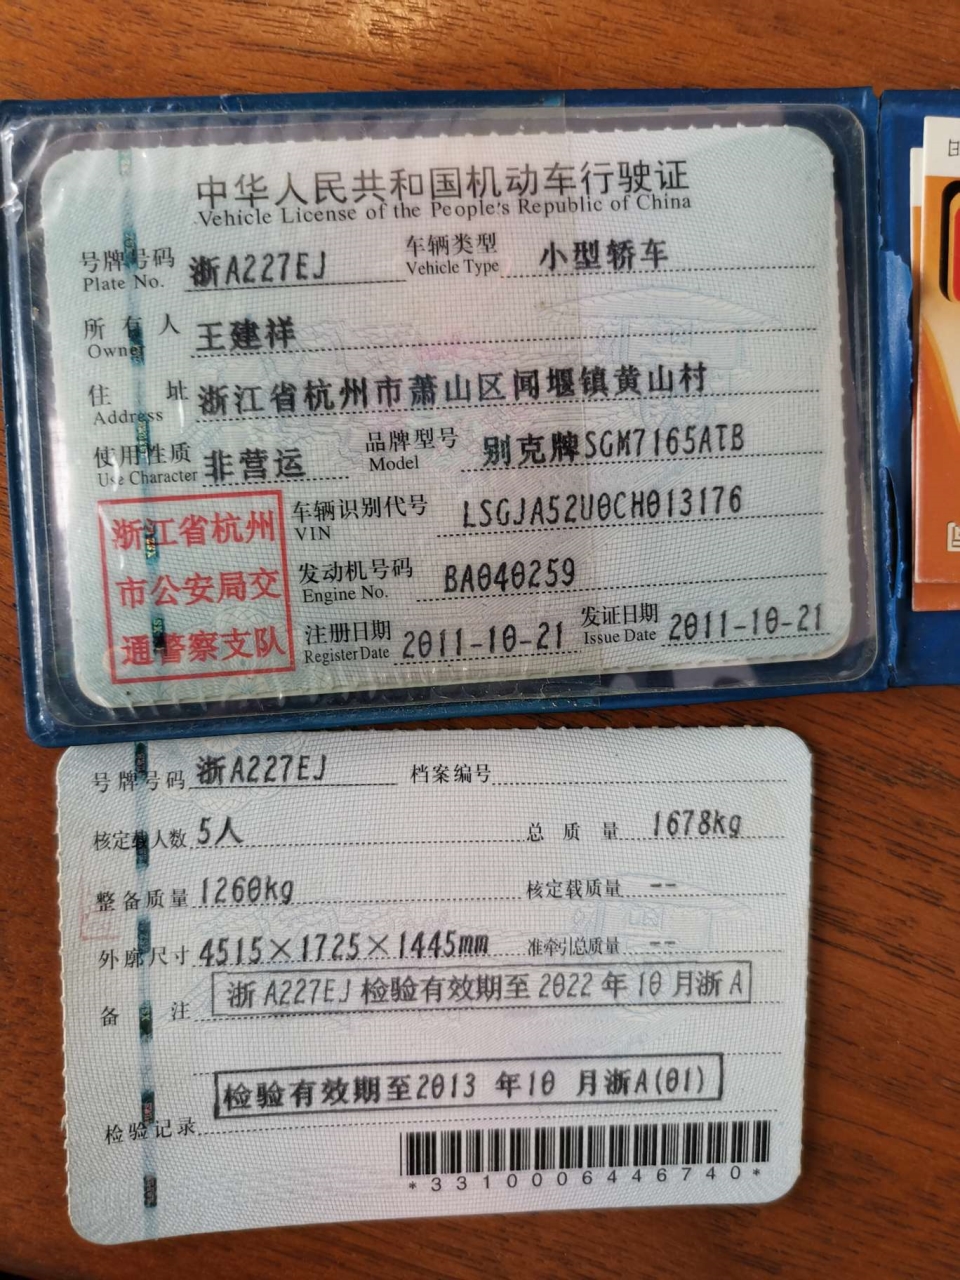 中华人民共和国机动车行驶证
Vehicle License of the People's Republic of China
号牌号码 浙A227EJ 车辆类型 小型轿车
Plate No. Vehicle Type
所有人 王建祥
Owner
住址 浙江省杭州市萧山区闻堰镇黄山村
Address
使用性质 非营运 品牌型号 别克牌SGM7165ATB
Use Character Model
浙江省杭州
市公安局交
通警察支队
车辆识别代号 LSGJA52U0CH013176
VIN
发动机号码 BA040259
Engine No.
注册日期 2011-10-21 发证日期 2011-10-21
Register Date Issue Date
号牌号码 浙A227EJ 档案编号
核定载人数 5人 总质量 1678kg
整备质量 1260kg 核定载质量 --
外廓尺寸 4515×1725×1445mm 准牵引总质量 --
备注 浙A227EJ 检验有效期至2022年10月浙A
检验有效期至2013 年10 月浙A(01)
检验记录
*3310006446740*